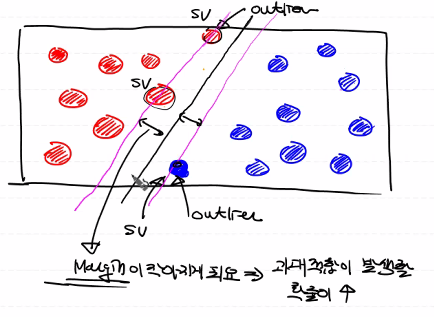 SV outlier
SV
SV outlier
Margin이 작아지게 되요 ⇒ 과대적합이 발생할
확률이 ↑